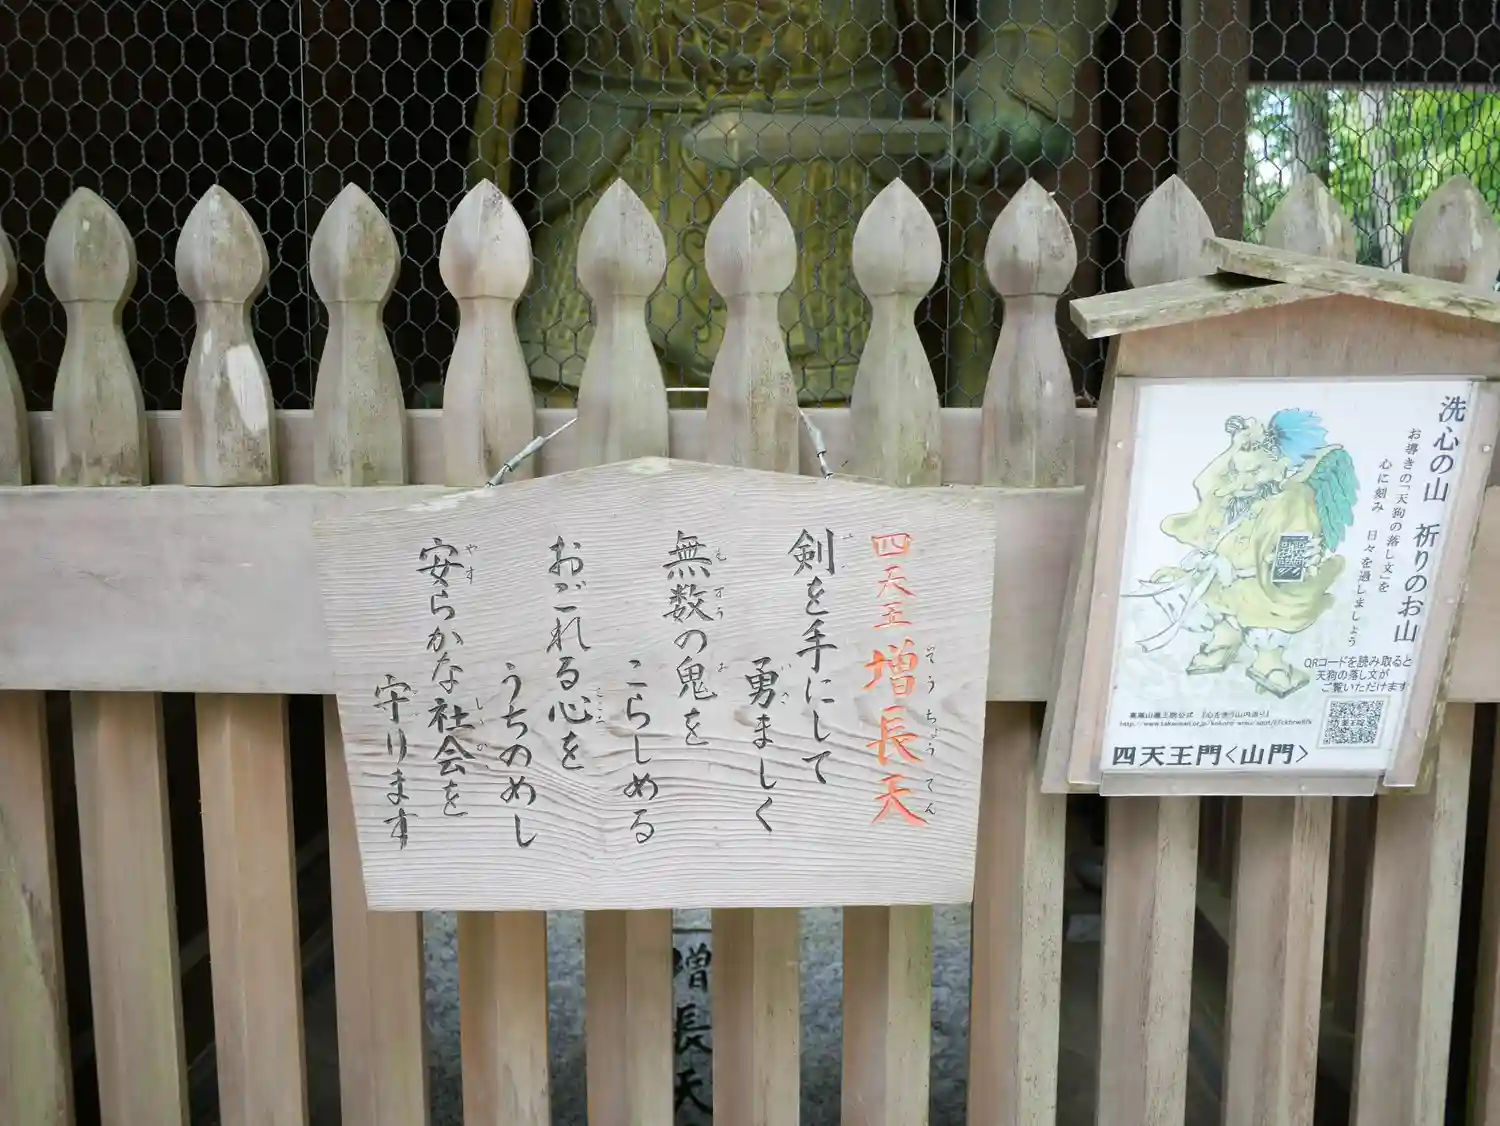 四天王増長天
ぞうちょうてん
剣を手にして
勇ましく
無数の鬼を
むすう
お
こらしめる
おごれる心を
こころ
うちのめし
安らかな社会を
やす
しゃかい
守ります
増長天
洗心の山 祈りのお山
お導きの「天狗の落し文」を
心に刻み 日々を過しましょう
QRコードを読み取ると
天狗の落し文が
ご覧いただけます
高尾山薬王院公式
四天王門<山門>